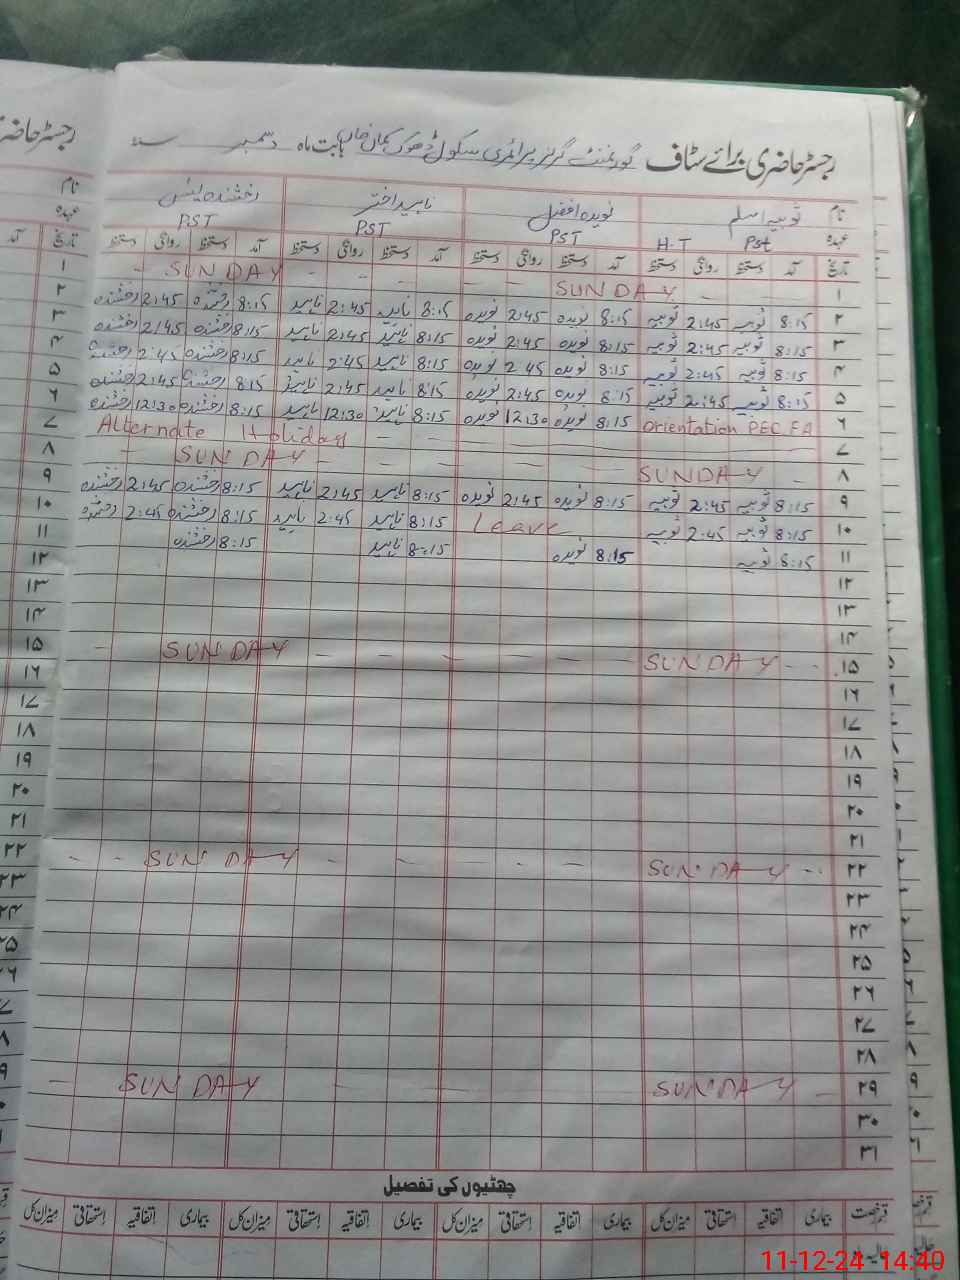 رجسٹر حاضری برائے سٹاف گورنمنٹ گرلز پرائمری سکول ڈھوک کمال خان بابت ماہ دسمبر سنہ
نام ثوبیہ اسلم نویدہ افضل ناہید اختر رخشندہ
عہدہ Pst H-T PST PST PST
تاریخ آمد دستخط روانگی دستخط آمد دستخط روانگی دستخط آمد دستخط روانگی دستخط آمد دستخط روانگی دستخط
۱ SUNDAY SUNDAY
۲ 8:15 ثوبیہ 2:45 ثوبیہ 8:15 نویدہ 2:45 نویدہ 8:15 ناہید 2:45 ناہید 8:15 رخشندہ 2:45 رخشندہ
۳ 8:15 ثوبیہ 2:45 ثوبیہ 8:15 نویدہ 2:45 نویدہ 8:15 ناہید 2:45 ناہید 8:15 رخشندہ 2:45 رخشندہ
۴ 8:15 ثوبیہ 2:45 ثوبیہ 8:15 نویدہ 2 45 نویدہ 8:15 ناہید 2:45 ناہید 8:15 رخشندہ 2:45 رخشندہ
۵ 8:15 ثوبیہ 2:45 ثوبیہ 8:15 نویدہ 2:45 نویدہ 8:15 ناہید 2:45 ناہید 8:15 رخشندہ 2:45 رخشندہ
۶ Orientation PEC FA 8:15 نویدہ 12:30 نویدہ 8:15 ناہید 12:30 ناہید 8:15 رخشندہ 12:30 رخشندہ
۷ Alternate Holiday
۸ SUNDAY SUNDAY
۹ 8:15 ثوبیہ 2:45 ثوبیہ 8:15 نویدہ 2:45 نویدہ 8:15 ناہید 2:45 ناہید 8:15 رخشندہ 2:45 رخشندہ
۱۰ 8:15 ثوبیہ 2:45 ثوبیہ Leave 8:15 ناہید 2:45 ناہید 8:15 رخشندہ 2:45 رخشندہ
۱۱ 8:15 ثوبیہ 8:15 نویدہ 8:15 ناہید 8:15 رخشندہ
۱۲
۱۳
۱۴
۱۵ SUNDAY SUNDAY
۱۶
۱۷
۱۸
۱۹
۲۰
۲۱
۲۲ SUNDAY SUNDAY
۲۳
۲۴
۲۵
۲۶
۲۷
۲۸
۲۹ SUNDAY SUNDAY
۳۰
۳۱
چھٹیوں کی تفصیل
قسم رخصت بیماری اتفاقیہ استحقاقی میزان کل بیماری اتفاقیہ استحقاقی میزان کل بیماری اتفاقیہ استحقاقی میزان کل بیماری اتفاقیہ استحقاقی میزان کل
11-12-24 14:40